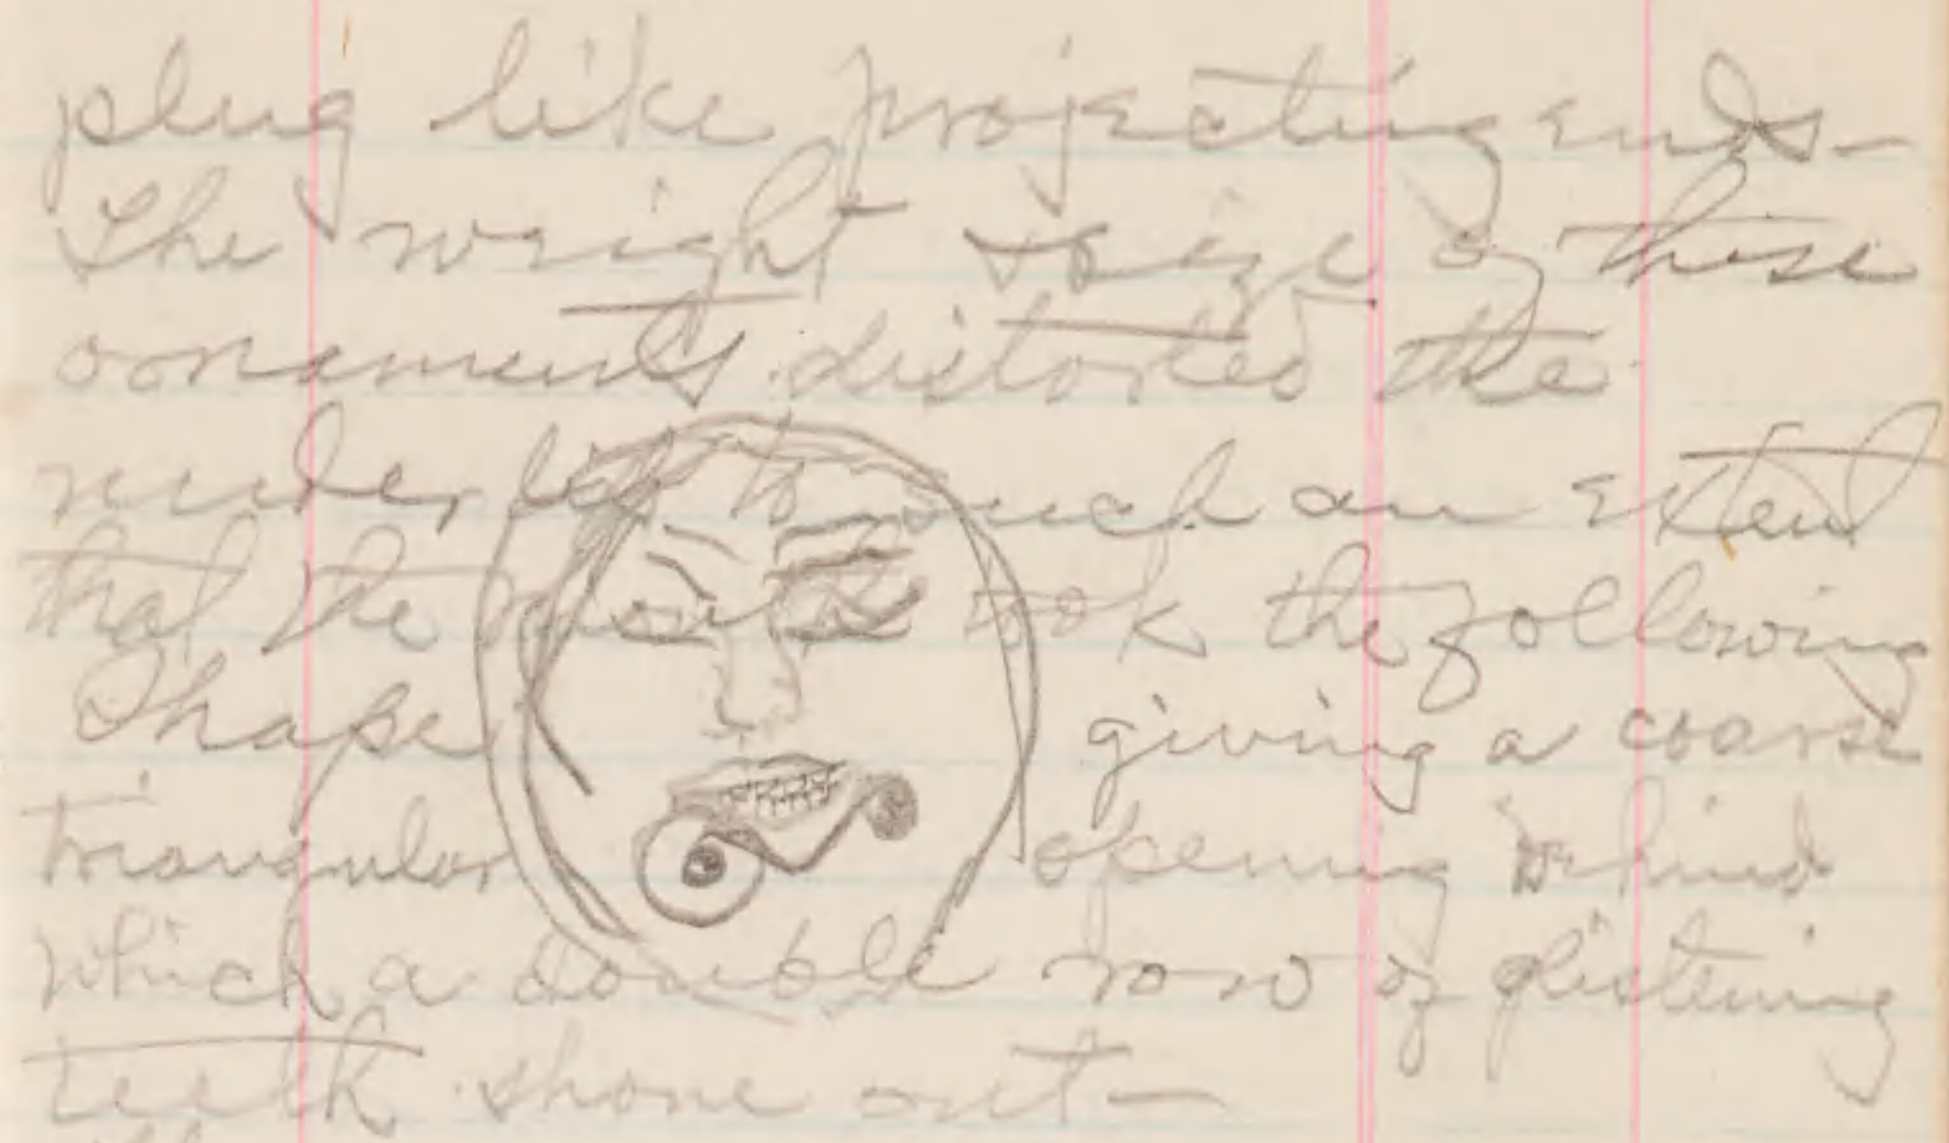 plug like projecting ends—
The weight & size of these
ornaments distorted the
under lip to such an extent
that the mouth took the following
Shape giving a coarse
triangular opening behind
which a double row of glistening
teeth shone out—